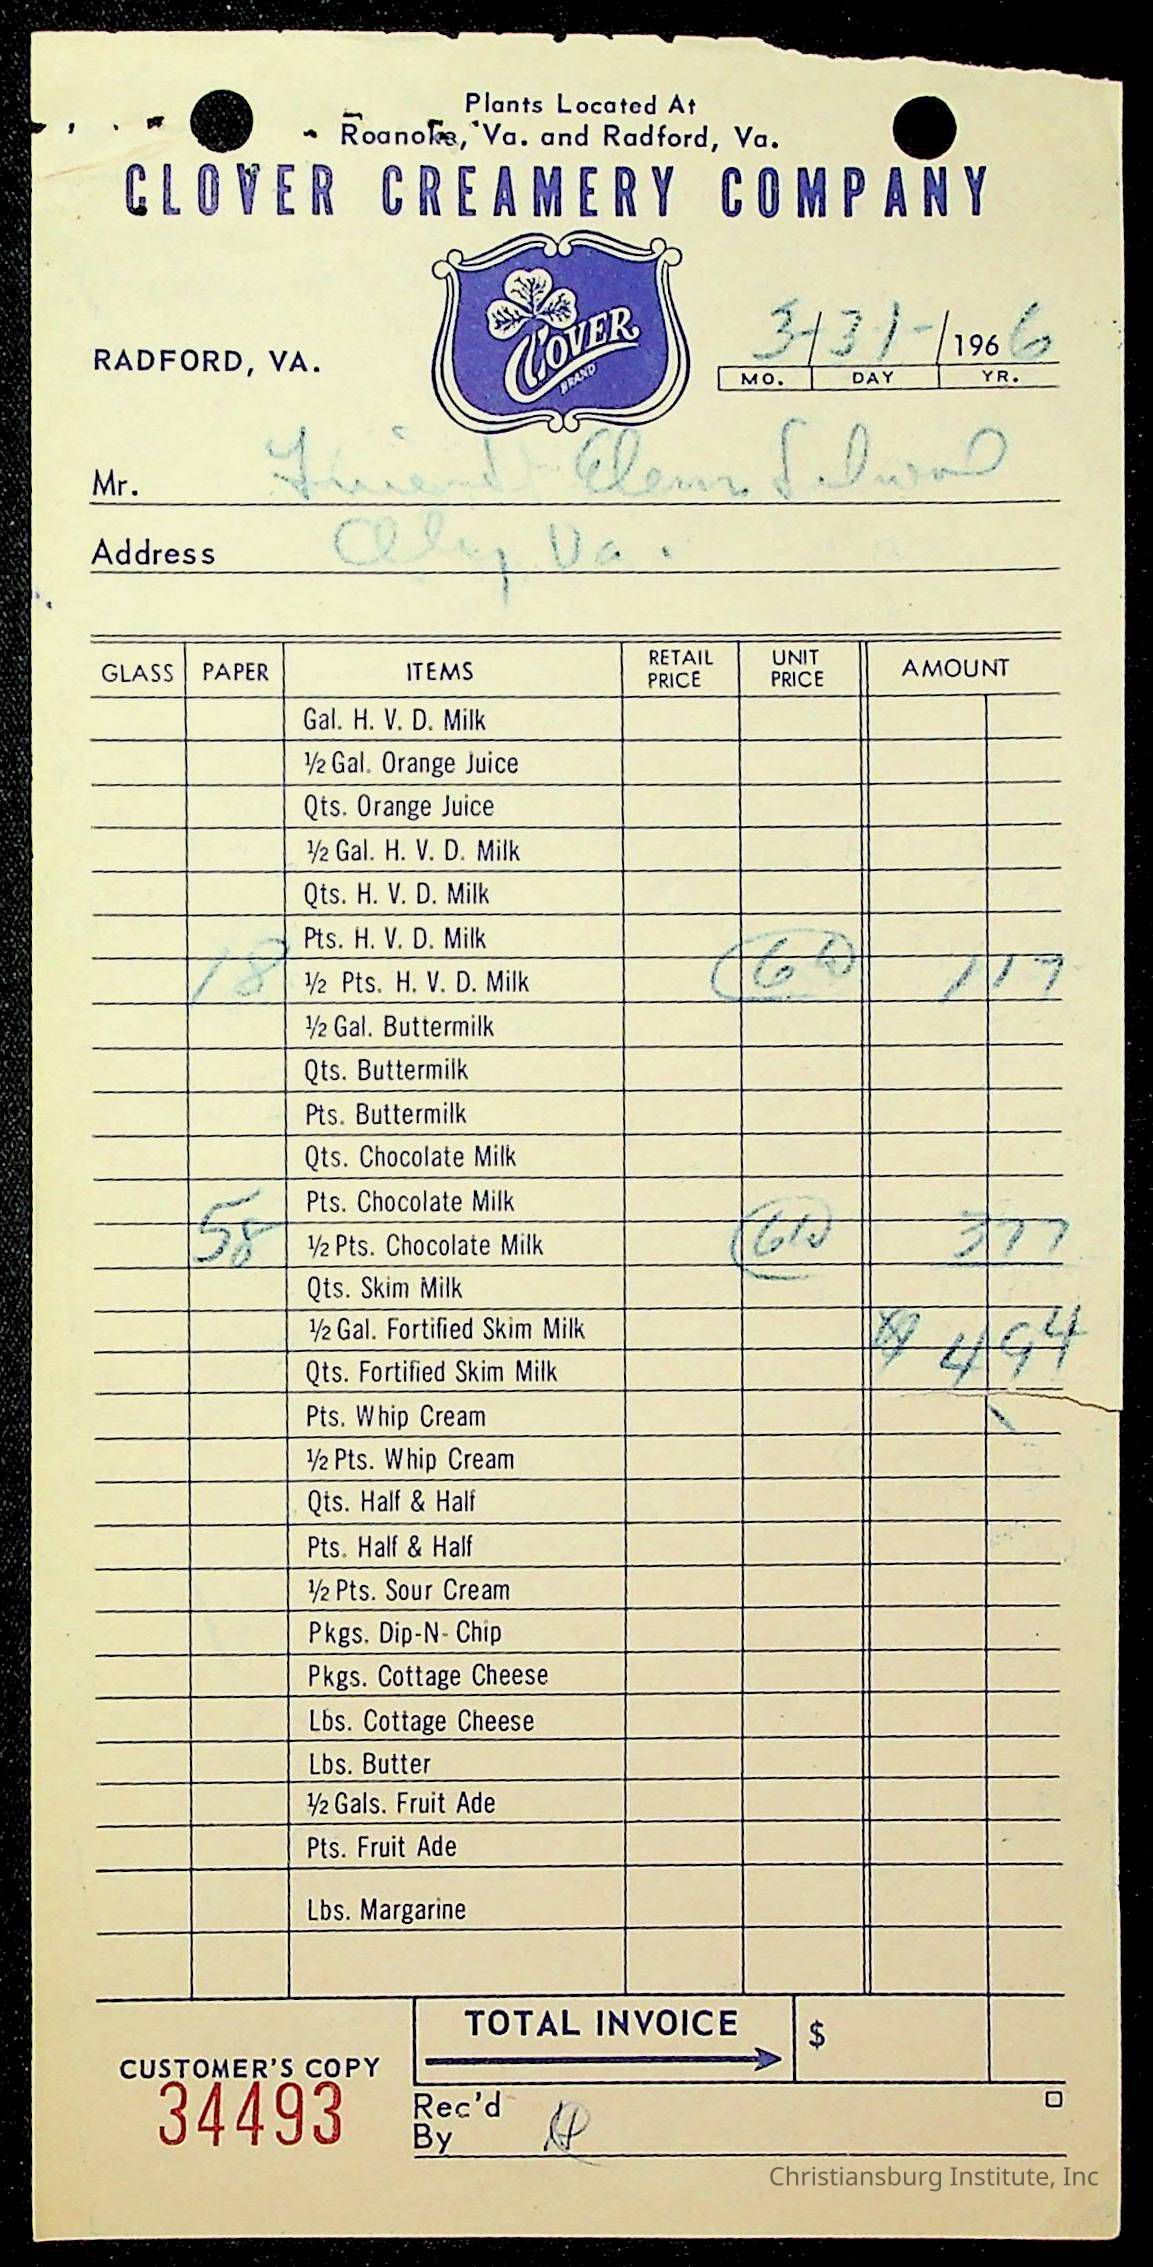 Plants Located At
Roanoke, Va. and Radford, Va.
CLOVER CREAMERY COMPANY
CLOVER
BRAND
RADFORD, VA.
3/31-/1966
MO. DAY YR.
Mr. Friends Elem School
Address Va.
GLASS PAPER ITEMS RETAIL PRICE UNIT PRICE AMOUNT
Gal. H. V. D. Milk
½ Gal. Orange Juice
Qts. Orange Juice
½ Gal. H. V. D. Milk
Qts. H. V. D. Milk
Pts. H. V. D. Milk
18 ½ Pts. H. V. D. Milk 117
½ Gal. Buttermilk
Qts. Buttermilk
Pts. Buttermilk
Qts. Chocolate Milk
Pts. Chocolate Milk
58 ½ Pts. Chocolate Milk 377
Qts. Skim Milk
½ Gal. Fortified Skim Milk 494
Qts. Fortified Skim Milk
Pts. Whip Cream
½ Pts. Whip Cream
Qts. Half & Half
Pts. Half & Half
½ Pts. Sour Cream
Pkgs. Dip-N-Chip
Pkgs. Cottage Cheese
Lbs. Cottage Cheese
Lbs. Butter
½ Gals. Fruit Ade
Pts. Fruit Ade
Lbs. Margarine
TOTAL INVOICE $
CUSTOMER'S COPY
34493
Rec'd
By
Christiansburg Institute, Inc